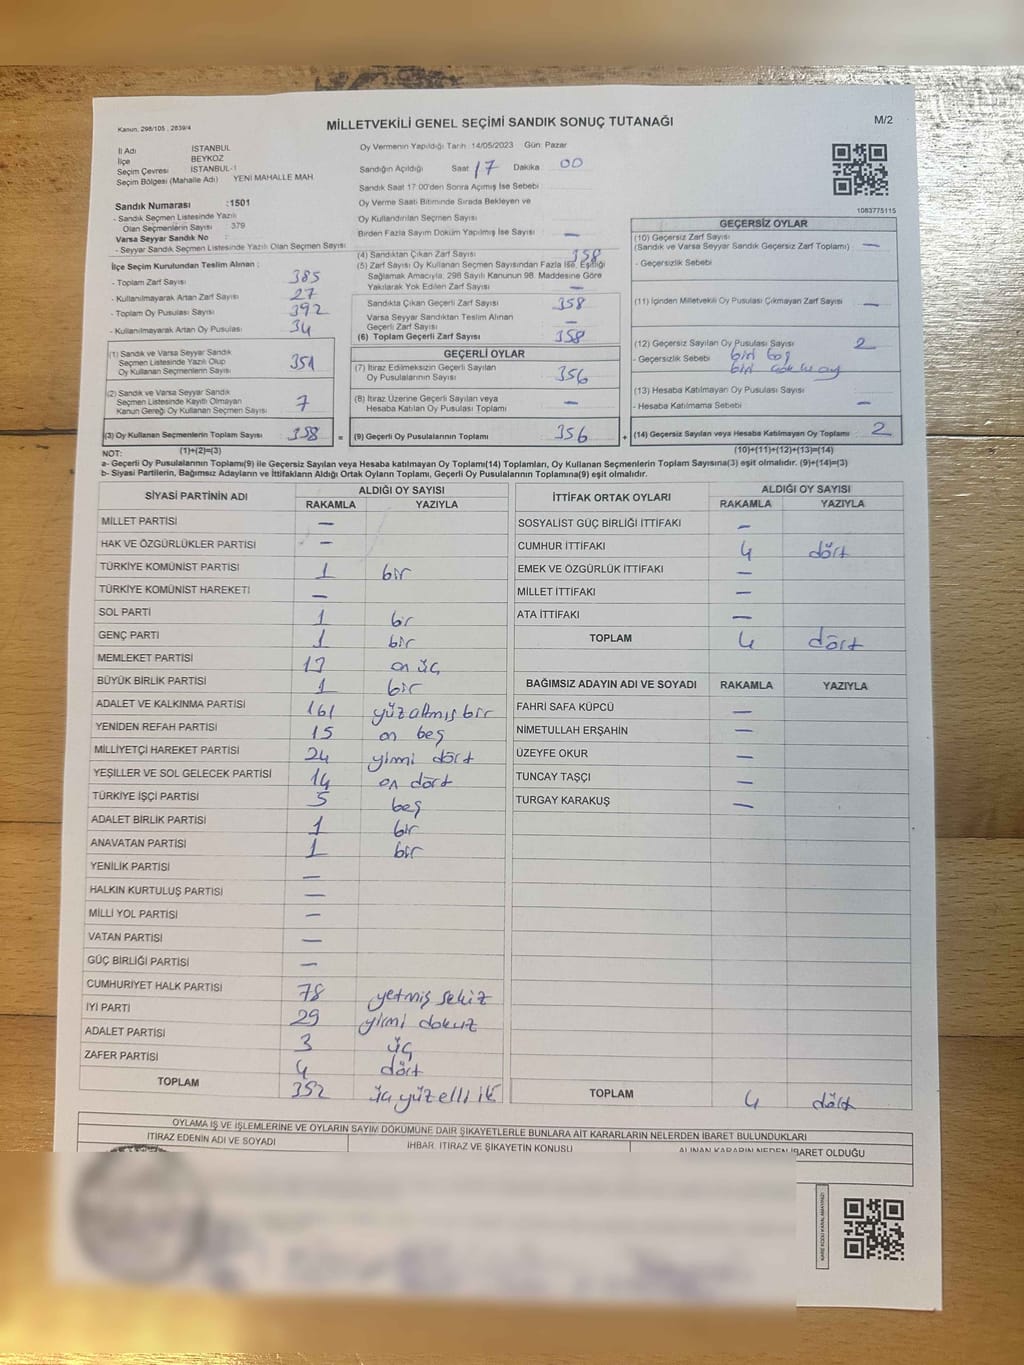 Kanun, 298/105 , 2839/4
MİLLETVEKİLİ GENEL SEÇİMİ SANDIK SONUÇ TUTANAĞI
M/2
İl Adı İSTANBUL
İlçe BEYKOZ
Seçim Çevresi İSTANBUL-1
Seçim Bölgesi (Mahalle Adı) YENİ MAHALLE MAH.
Sandık Numarası :1501
- Sandık Seçmen Listesinde Yazılı
Olan Seçmenlerin Sayısı : 379
Varsa Seyyar Sandık No :
- Seyyar Sandık Seçmen Listesinde Yazılı Olan Seçmen Sayısı
Oy Vermenin Yapıldığı Tarih :14/05/2023 Gün: Pazar
Sandığın Açıldığı Saat 17 Dakika 00
Sandık Saat 17.00'den Sonra Açımış İse Sebebi
Oy Verme Saati Bitiminde Sırada Bekleyen ve
Oy Kullandırılan Seçmen Sayısı
Birden Fazla Sayım Döküm Yapılmış İse Sayısı —
1083775115
İlçe Seçim Kurulundan Teslim Alınan ;
- Toplam Zarf Sayısı 385
- Kullanılmayarak Artan Zarf Sayısı 27
- Toplam Oy Pusulası Sayısı 392
- Kullanılmayarak Artan Oy Pusulası 34
(1) Sandık ve Varsa Seyyar Sandık
Seçmen Listesinde Yazılı Olup
Oy Kullanan Seçmenlerin Sayısı 351
(2) Sandık ve Varsa Seyyar Sandık
Seçmen Listesinde Kayıtlı Olmayan
Kanun Gereği Oy Kullanan Seçmen Sayısı 7
(3) Oy Kullanan Seçmenlerin Toplam Sayısı 358 =
(1)+(2)=(3)
(4) Sandıktan Çıkan Zarf Sayısı 358
(5) Zarf Sayısı Oy Kullanan Seçmen Sayısından Fazla İse, Eşitliği
Sağlamak Amacıyla, 298 Sayılı Kanunun 98. Maddesine Göre
Yakılarak Yok Edilen Zarf Sayısı —
Sandıkta Çıkan Geçerli Zarf Sayısı 358
Varsa Seyyar Sandıktan Teslim Alınan
Geçerli Zarf Sayısı —
(6) Toplam Geçerli Zarf Sayısı 358
GEÇERLİ OYLAR
(7) İtiraz Edilmeksizin Geçerli Sayılan
Oy Pusulalarının Sayısı 356
(8) İtiraz Üzerine Geçerli Sayılan veya
Hesaba Katılan Oy Pusulası Toplamı —
(9) Geçerli Oy Pusulalarının Toplamı 356 +
GEÇERSİZ OYLAR
(10) Geçersiz Zarf Sayısı
(Sandık ve Varsa Seyyar Sandık Geçersiz Zarf Toplamı) —
- Geçersizlik Sebebi
(11) İçinden Milletvekili Oy Pusulası Çıkmayan Zarf Sayısı —
(12) Geçersiz Sayılan Oy Pusulası Sayısı 2
- Geçersizlik Sebebi biri boş
biri
(13) Hesaba Katılmayan Oy Pusulası Sayısı
- Hesaba Katılmama Sebebi —
(14) Geçersiz Sayılan veya Hesaba Katılmayan Oy Toplamı 2
(10)+(11)+(12)+(13)=(14)
NOT:
a- Geçerli Oy Pusulalarının Toplamı(9) ile Geçersiz Sayılan veya Hesaba katılmayan Oy Toplamı(14) Toplamları, Oy Kullanan Seçmenlerin Toplam Sayısına(3) eşit olmalıdır. (9)+(14)=(3)
b- Siyasi Partilerin, Bağımsız Adayların ve İttifakların Aldığı Ortak Oyların Toplamı, Geçerli Oy Pusulalarının Toplamına(9) eşit olmalıdır.
SİYASİ PARTİNİN ADI ALDIĞI OY SAYISI
RAKAMLA YAZIYLA
MİLLET PARTİSİ —
HAK VE ÖZGÜRLÜKLER PARTİSİ —
TÜRKİYE KOMÜNİST PARTİSİ 1 bir
TÜRKİYE KOMÜNİST HAREKETİ —
SOL PARTİ 1 bir
GENÇ PARTİ 1 bir
MEMLEKET PARTİSİ 13 on üç
BÜYÜK BİRLİK PARTİSİ 1 bir
ADALET VE KALKINMA PARTİSİ 161 yüzaltmış bir
YENİDEN REFAH PARTİSİ 15 on beş
MİLLİYETÇİ HAREKET PARTİSİ 24 yirmi dört
YEŞİLLER VE SOL GELECEK PARTİSİ 14 on dört
TÜRKİYE İŞÇİ PARTİSİ 5 beş
ADALET BİRLİK PARTİSİ 1 bir
ANAVATAN PARTİSİ 1 bir
YENİLİK PARTİSİ —
HALKIN KURTULUŞ PARTİSİ —
MİLLİ YOL PARTİSİ —
VATAN PARTİSİ —
GÜÇ BİRLİĞİ PARTİSİ —
CUMHURİYET HALK PARTİSİ 78 yetmiş sekiz
İYİ PARTİ 29 yirmi dokuz
ADALET PARTİSİ 3 üç
ZAFER PARTİSİ 4 dört
TOPLAM 352 üçyüzelli iki
İTTİFAK ORTAK OYLARI ALDIĞI OY SAYISI
RAKAMLA YAZIYLA
SOSYALİST GÜÇ BİRLİĞİ İTTİFAKI —
CUMHUR İTTİFAKI 4 dört
EMEK VE ÖZGÜRLÜK İTTİFAKI —
MİLLET İTTİFAKI —
ATA İTTİFAKI —
TOPLAM 4 dört
BAĞIMSIZ ADAYIN ADI VE SOYADI RAKAMLA YAZIYLA
FAHRİ SAFA KÜPCÜ —
NİMETULLAH ERŞAHİN —
ÜZEYFE OKUR —
TUNCAY TAŞÇI —
TURGAY KARAKUŞ —
TOPLAM 4 dört
OYLAMA İŞ VE İŞLEMLERİNE VE OYLARIN SAYIM DÖKÜMÜNE DAİR ŞİKAYETLERLE BUNLARA AİT KARARLARIN NELERDEN İBARET BULUNDUKLARI
İTİRAZ EDENİN ADI VE SOYADI İHBAR, İTİRAZ VE ŞİKAYETİN KONUSU ALINAN KARARIN NEDEN İBARET OLDUĞU
KARE KODU KARALAMAYINIZ!